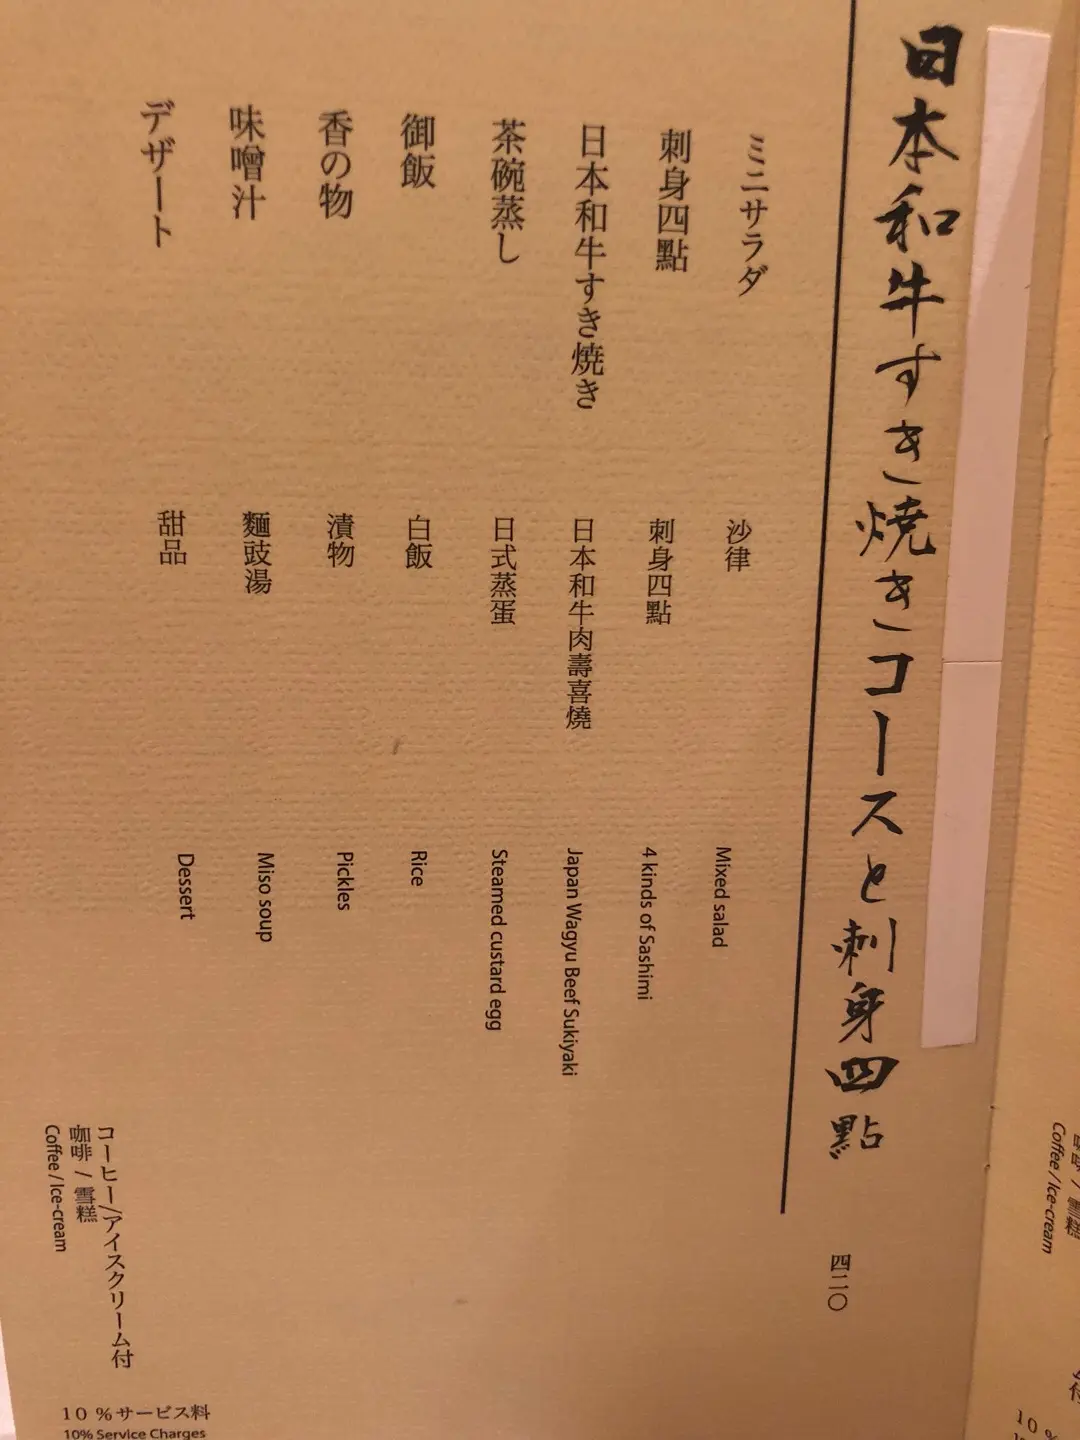 日本和牛すき焼きコースと刺身四點
四二〇
ミニサラダ
沙律
Mixed salad
刺身四點
刺身四點
4 kinds of Sashimi
日本和牛すき焼き
日本和牛肉壽喜燒
Japan Wagyu Beef Sukiyaki
茶碗蒸し
日式蒸蛋
Steamed custard egg
御飯
白飯
Rice
香の物
漬物
Pickles
味噌汁
麵豉湯
Miso soup
デザート
甜品
Dessert
コーヒー/アイスクリーム付
咖啡 / 雪糕
Coffee / Ice-cream
10%サービス料
10% Service Charges
咖啡 / 雪糕
Coffee / Ice-cream
付
10%